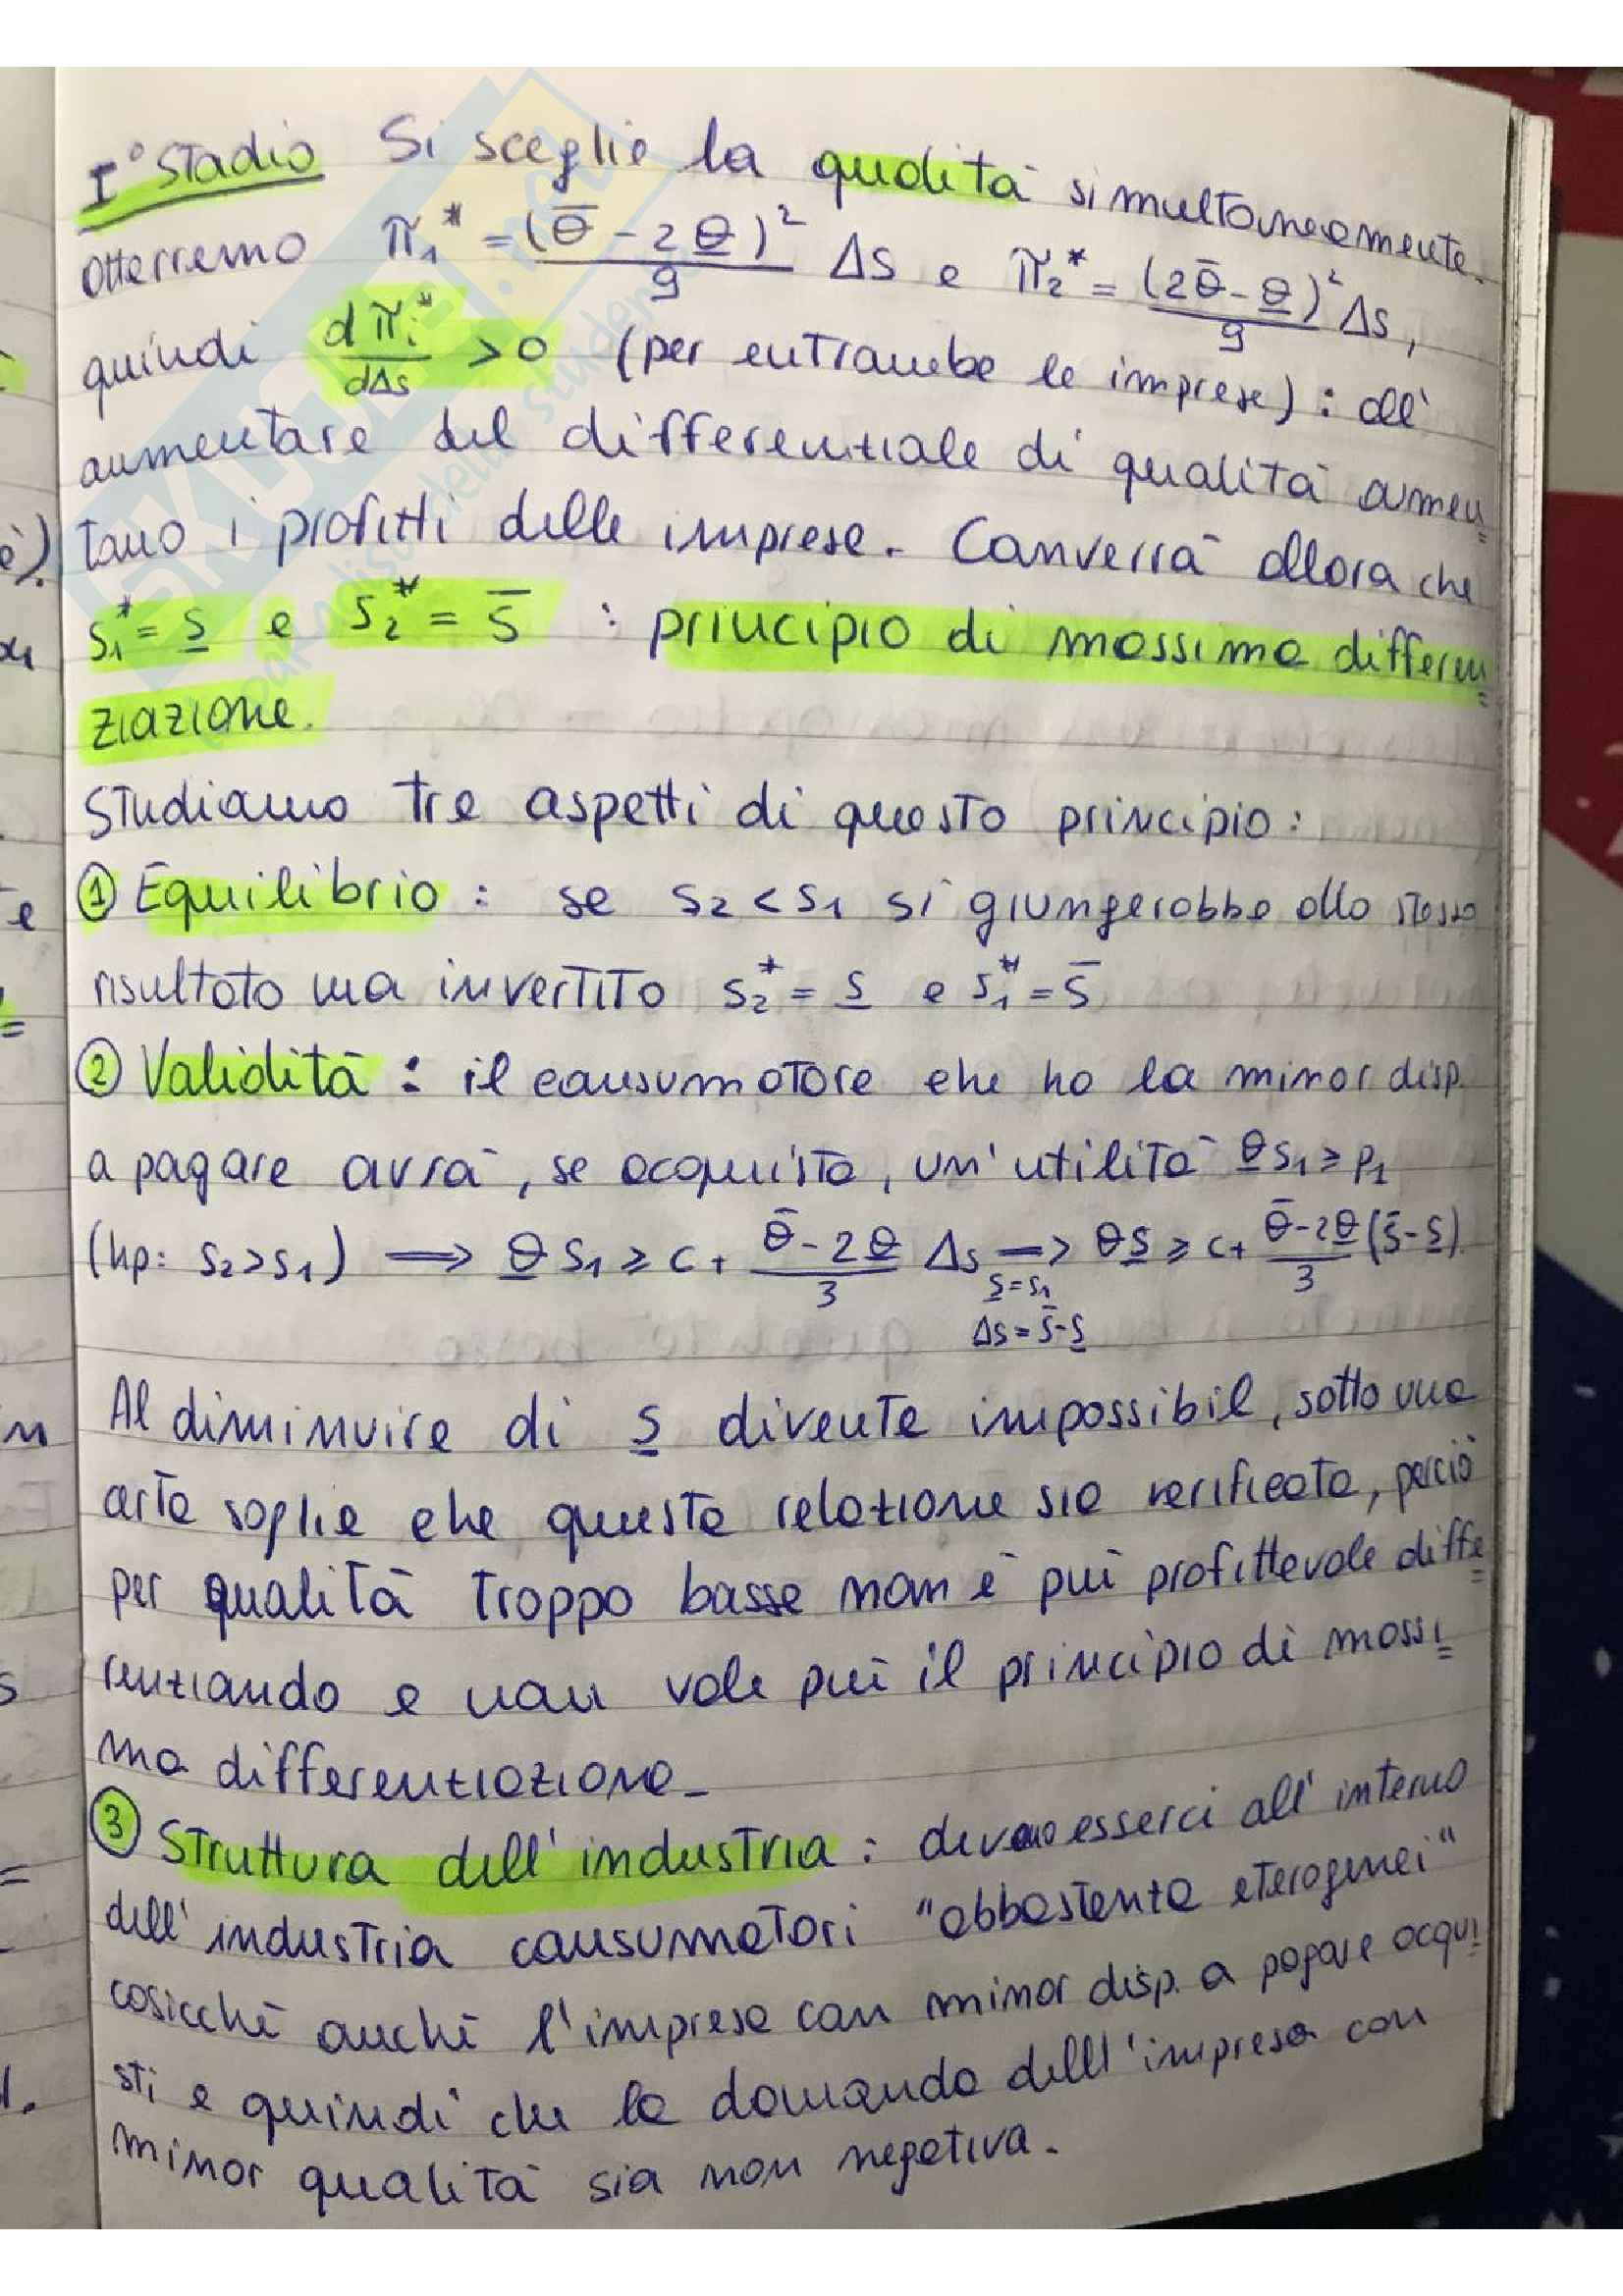 I° Stadio Si sceglie la qualità simultaneamente.
Otterremo π₁* = (θ̅ - 2θ̲)²/9 Δs e π₂* = (2θ̅ - θ̲)²/9 Δs,
quindi dπᵢ*/dΔs > 0 (per entrambe le imprese): all'
aumentare del differenziale di qualità aumen=
tano i profitti delle imprese. Converrà allora che
s₁* = s̲ e s₂* = s̅ : principio di massima differen=
ziazione.
Studiamo tre aspetti di questo principio:
① Equilibrio : se s₂ < s₁ si giungerebbe allo stesso
risultato ma invertito s₂* = s̲ e s₁* = s̅
② Validità : il consumatore che ha la minor disp.
a pagare avrà, se acquista, un'utilità θ̲s₁ ≥ p₁
(hp: s₂>s₁) ⟹ θ̲ s₁ ≥ c + (θ̅ - 2θ̲)/3 Δs ⟹ θs̲ ≥ c + (θ̅ - 2θ̲)/3 (s̅ - s̲).
s̲ = s₁
Δs = s̅ - s̲
Al diminuire di s̲ diventa impossibil, sotto una
certa soglia che questa relazione sia verificata, perciò
per qualità troppo basse non è più profittevole diffe=
renziando e non vale più il principio di massi=
ma differenziazione_
③ Struttura dell'industria : devono esserci all'interno
dell'industria consumatori "abbastanza eterogenei"
cosicché anche l'impresa con minor disp. a pagare acqui=
sti e quindi che la domanda dell'impresa con
minor qualità sia non negativa.
SKUOLA.net